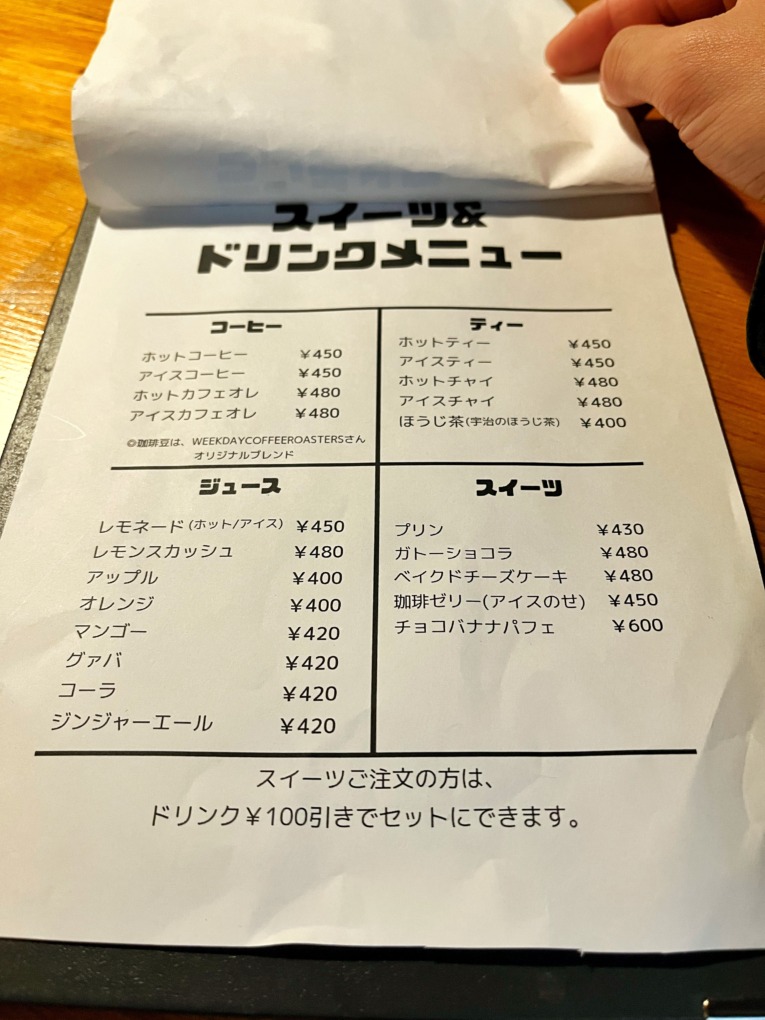 スイーツ&
ドリンクメニュー
コーヒー
ホットコーヒー ¥450
アイスコーヒー ¥450
ホットカフェオレ ¥480
アイスカフェオレ ¥480
◎珈琲豆は、WEEKDAYCOFFEEROASTERSさん
オリジナルブレンド
ティー
ホットティー ¥450
アイスティー ¥450
ホットチャイ ¥480
アイスチャイ ¥480
ほうじ茶(宇治のほうじ茶) ¥400
ジュース
レモネード(ホット/アイス) ¥450
レモンスカッシュ ¥480
アップル ¥400
オレンジ ¥400
マンゴー ¥420
グァバ ¥420
コーラ ¥420
ジンジャーエール ¥420
スイーツ
プリン ¥430
ガトーショコラ ¥480
ベイクドチーズケーキ ¥480
珈琲ゼリー(アイスのせ) ¥450
チョコバナナパフェ ¥600
スイーツご注文の方は、
ドリンク¥100引きでセットにできます。